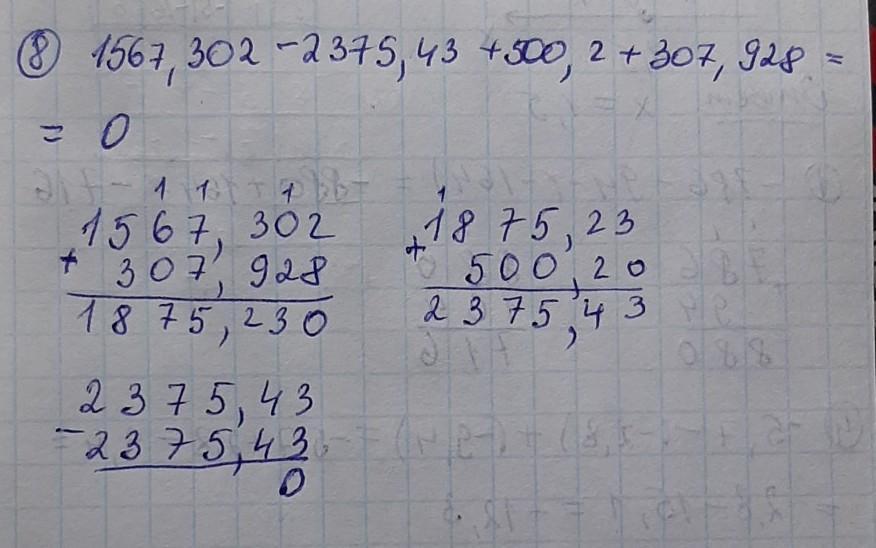 ⑧ 1567,302 - 2375,43 + 500,2 + 307,928 =
= 0
1 1 1
1567,302
+ 307,928
1875,230
1
1875,23
+ 500,20
2375,43
2375,43
- 2375,43
0